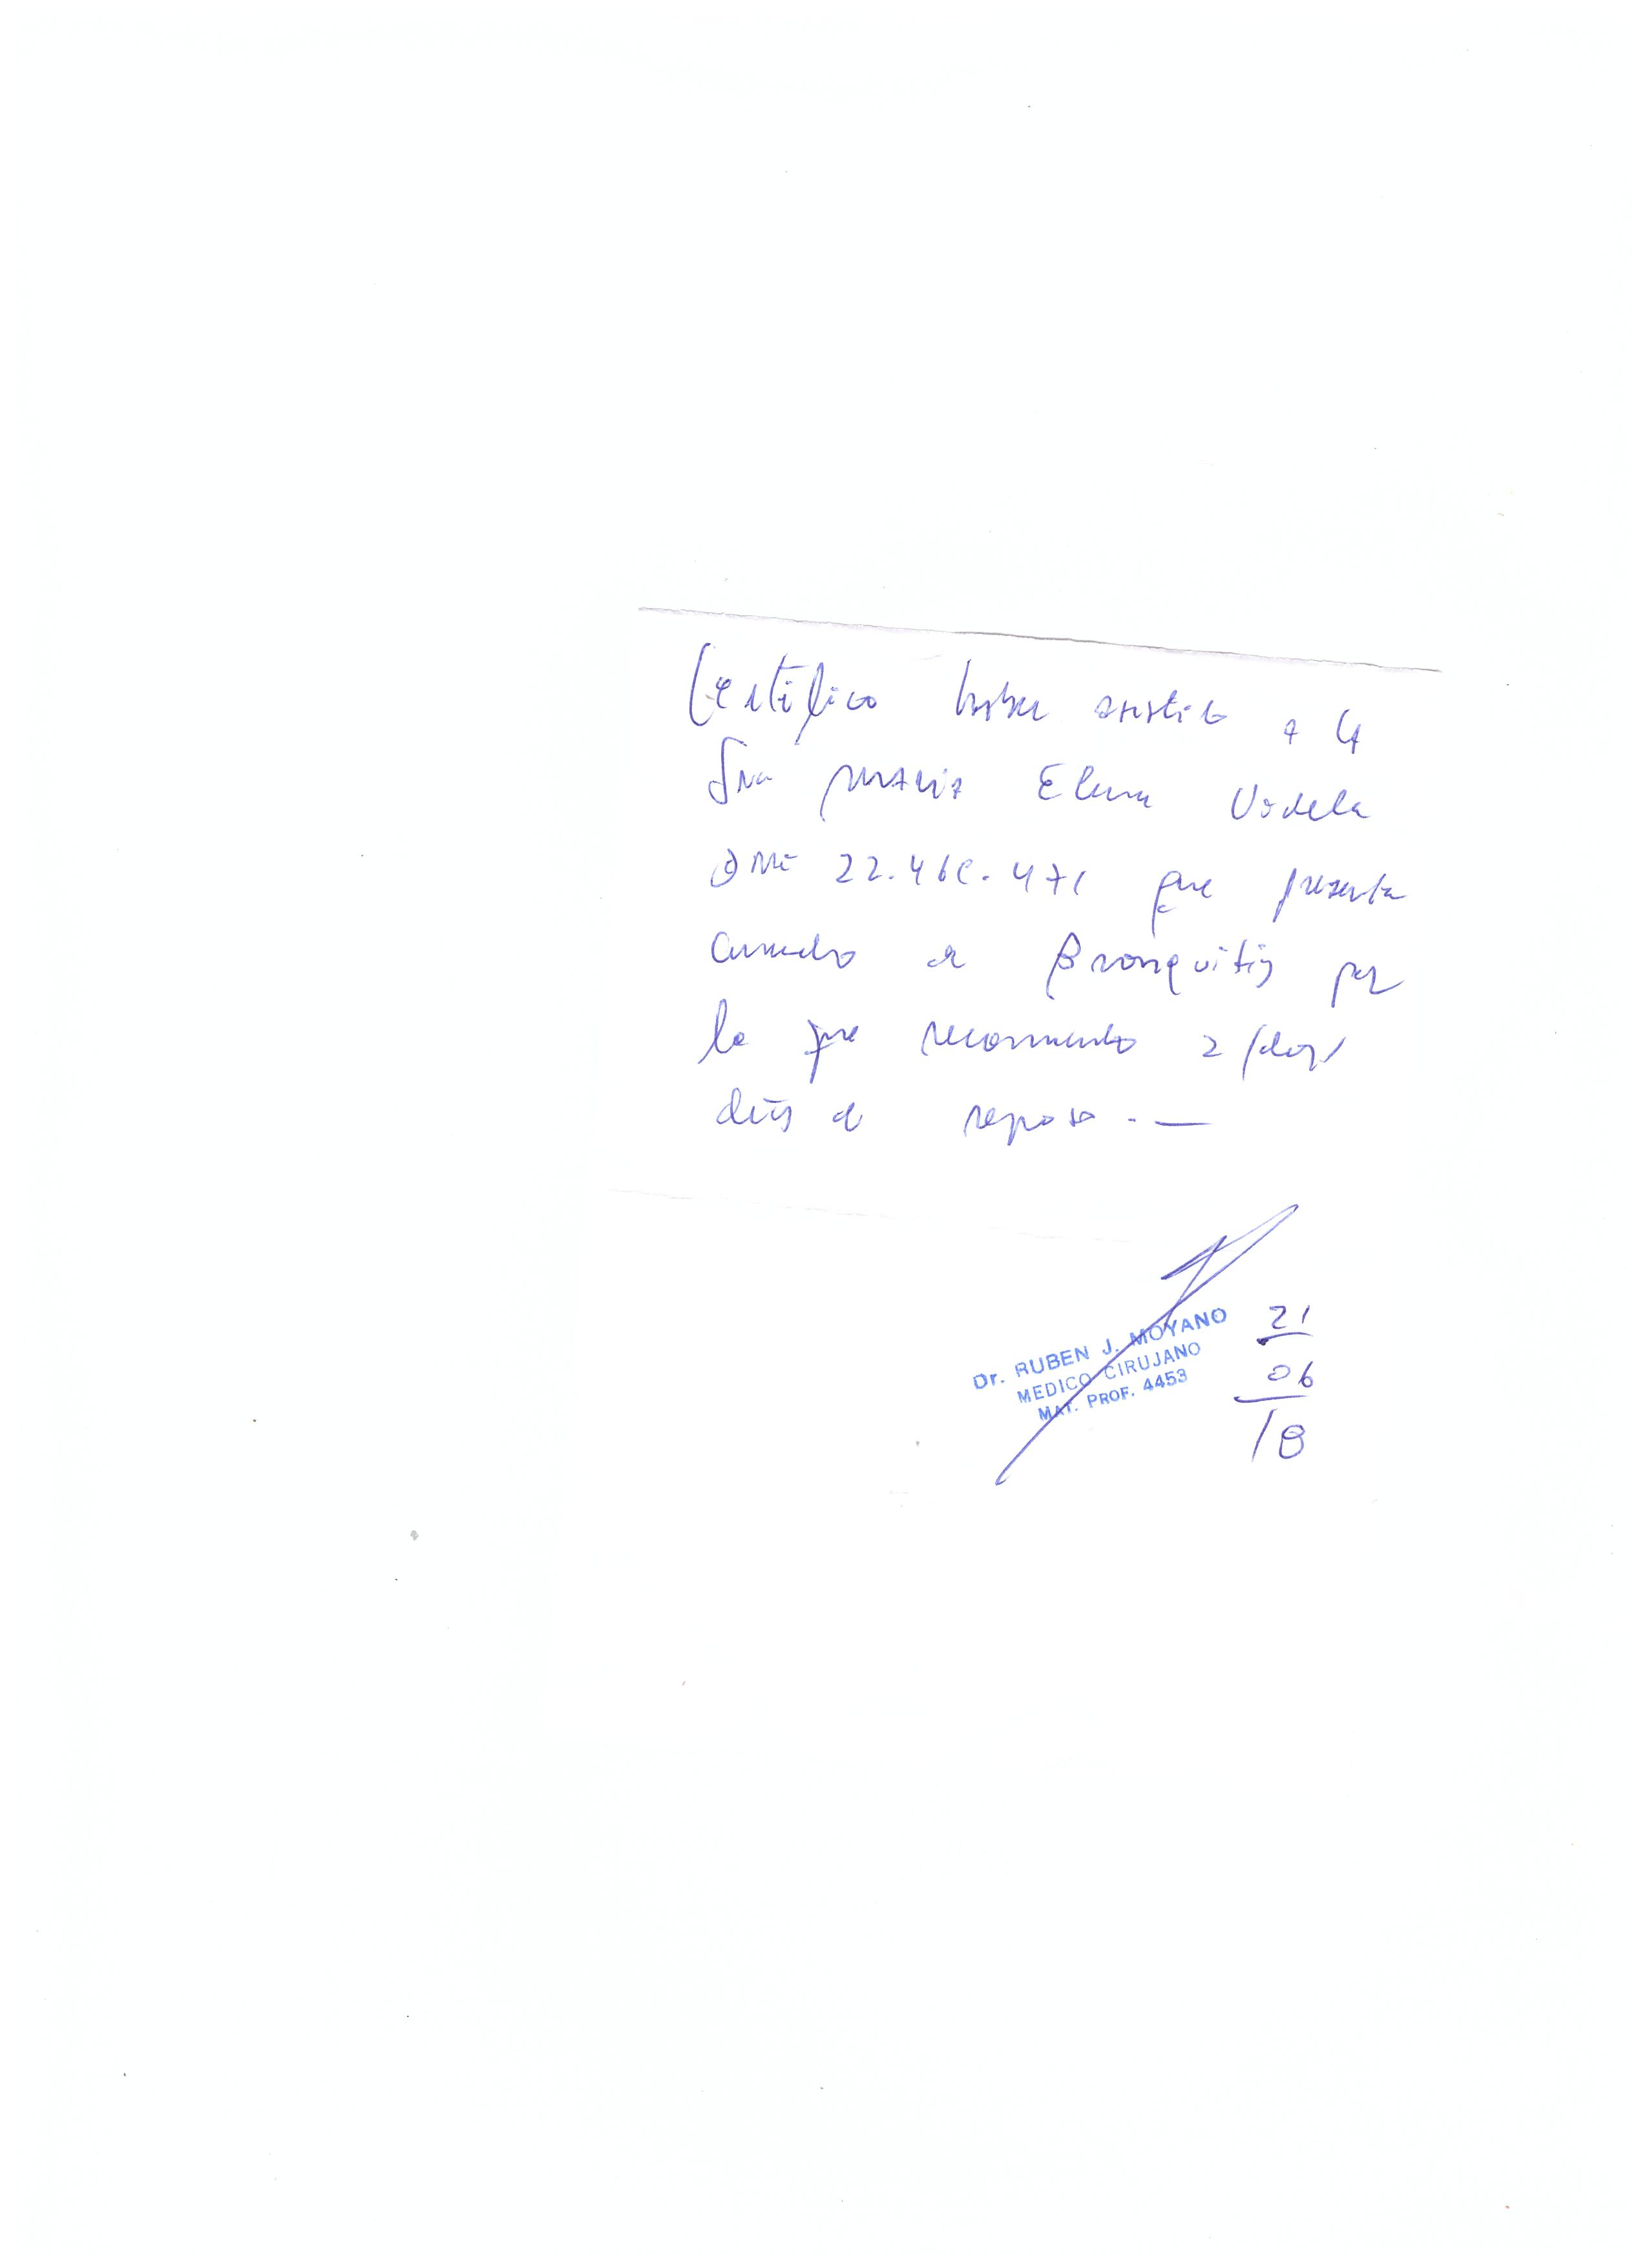 Certifico haber asistido a la
Sra Maria Elena Videla
DNI que presenta
cuadro de Bronquitis por
lo que recomiendo 2 (dos)
días de reposo.-
Dr. RUBEN J. MOYANO
MEDICO CIRUJANO
MAT. PROF. 4453
21
06
18